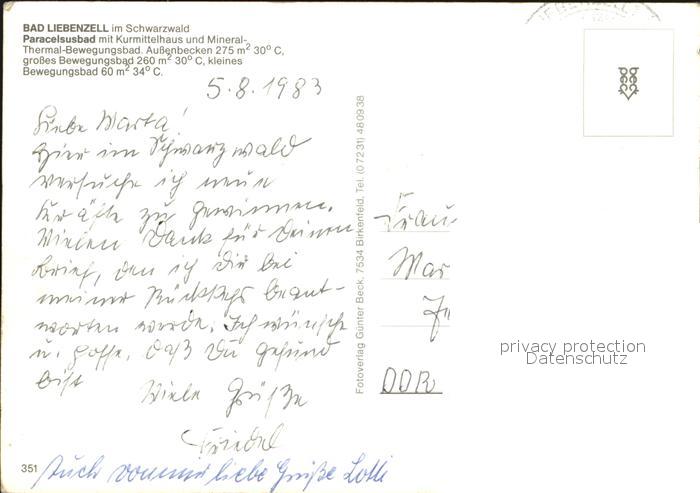 BAD LIEBENZELL im Schwarzwald
Paracelsusbad mit Kurmittelhaus und Mineral-
Thermal-Bewegungsbad. Außenbecken 275 m² 30° C,
großes Bewegungsbad 260 m² 30° C, kleines
Bewegungsbad 60 m² 34° C.
5.8.1983
Liebe Marta!
Hier im Schwarzwald
versuche ich neue
Kräfte zu gewinnen.
Vielen Dank für Deinen
Brief, den ich Dir bei
meiner Rückkehr beant-
worten werde. Ich wünsche
u. hoffe, daß Du gesund
bist
Viele Grüße
Friedel
351
Auch von mir liebe Grüße Lotti
Fotoverlag Günter Beck, 7534 Birkenfeld, Tel. (0 72 31) 48 09 38
beck
Frau
Mar
DDR
privacy protection
Datenschutz